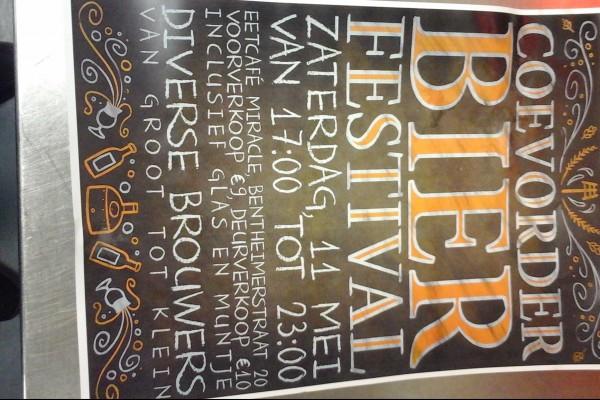 COEVORDER
BIER
FESTIVAL
ZATERDAG, 11 MEI
VAN 17:00 TOT 23:00
EETCAFÉ MIRACLE, BENTHEIMERSTRAAT 20
VOORVERKOOP €9, DEURVERKOOP €10
INCLUSIEF GLAS EN MUNTJE
DIVERSE BROUWERS
VAN GROOT TOT KLEIN